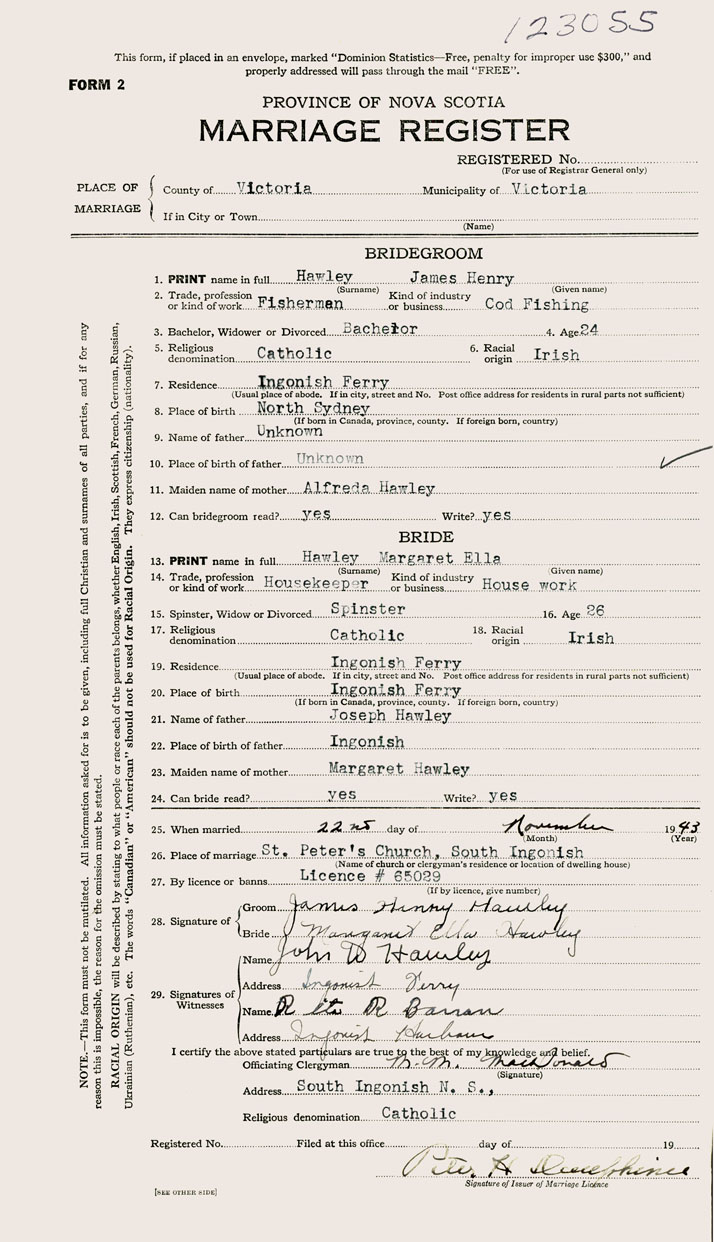 123055
This form, if placed in an envelope, marked "Dominion Statistics—Free, penalty for improper use $300," and
properly addressed will pass through the mail "FREE".
FORM 2
PROVINCE OF NOVA SCOTIA
MARRIAGE REGISTER
REGISTERED No.
(For use of Registrar General only)
PLACE OF MARRIAGE
County of Victoria Municipality of Victoria
If in City or Town
(Name)
BRIDEGROOM
1. PRINT name in full Hawley James Henry
(Surname) (Given name)
2. Trade, profession or kind of work Fisherman Kind of industry or business Cod Fishing
3. Bachelor, Widower or Divorced Bachelor 4. Age 24
5. Religious denomination Catholic 6. Racial origin Irish
7. Residence Ingonish Ferry
(Usual place of abode. If in city, street and No. Post office address for residents in rural parts not sufficient)
8. Place of birth North Sydney
(If born in Canada, province, county. If foreign born, country)
9. Name of father Unknown
10. Place of birth of father Unknown
11. Maiden name of mother Alfreda Hawley
12. Can bridegroom read? yes Write? yes
BRIDE
13. PRINT name in full Hawley Margaret Ella
(Surname) (Given name)
14. Trade, profession or kind of work Housekeeper Kind of industry or business House work
15. Spinster, Widow or Divorced Spinster 16. Age 26
17. Religious denomination Catholic 18. Racial origin Irish
19. Residence Ingonish Ferry
(Usual place of abode. If in city, street and No. Post office address for residents in rural parts not sufficient)
20. Place of birth Ingonish Ferry
(If born in Canada, province, county. If foreign born, country)
21. Name of father Joseph Hawley
22. Place of birth of father Ingonish
23. Maiden name of mother Margaret Hawley
24. Can bride read? yes Write? yes
25. When married 22nd day of November 1943
(Month) (Year)
26. Place of marriage St. Peter's Church, South Ingonish
(Name of church or clergyman's residence or location of dwelling house)
27. By licence or banns Licence # 65029
(If by licence, give number)
28. Signature of
Groom James Henry Hawley
Bride Margaret Ella Hawley
29. Signatures of Witnesses
Name John W Hawley
Address Ingonish Ferry
Name Rita R Barron
Address Ingonish Harbour
I certify the above stated particulars are true to the best of my knowledge and belief.
Officiating Clergyman M. M. MacDonald
(Signature)
Address South Ingonish N. S.,
Religious denomination Catholic
Registered No. Filed at this office day of 19
Peter H
Signature of Issuer of Marriage Licence
[SEE OTHER SIDE]
NOTE.—This form must not be mutilated. All information asked for is to be given, including full Christian and surnames of all parties, and if for any
reason this is impossible, the reason for the omission must be stated.
RACIAL ORIGIN will be described by stating to what people or race each of the parents belongs, whether English, Irish, Scottish, French, German, Russian,
Ukrainian (Ruthenian), etc. The words "Canadian" or "American" should not be used for Racial Origin. They express citizenship (nationality).